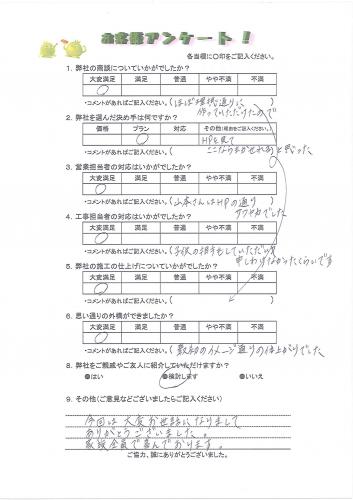 お客様アンケート！
各当欄に〇印をご記入ください。
1. 弊社の商談についていかがでしたか？
大変満足 満足 普通 やや不満 不満
・コメントがあればご記入ください。(ほぼ理想通りに
作っていただけたので
2. 弊社を選んだ決め手は何ですか？
価格 プラン 対応 その他（理由をご記入ください。）
HPを見て
・コメントがあればご記入ください。( ここならまかせれると思った
3. 営業担当者の対応はいかがでしたか？
大変満足 満足 普通 やや不満 不満
・コメントがあればご記入ください。(山本さんはHPの通り
サワヤカでした
4. 工事担当者の対応はいかがでしたか？
大変満足 満足 普通 やや不満 不満
・コメントがあればご記入ください。(子供の相手もしていただいて
申しわけなかったくらいです
5. 弊社の施工の仕上げついていかがでしたか？
大変満足 満足 普通 やや不満 不満
・コメントがあればご記入ください。(
6. 思い通りの外構ができましたか？
大変満足 満足 普通 やや不満 不満
・コメントがあればご記入ください。(最初のイメージ通りの仕上がりでした
8. 弊社をご親戚やご友人に紹介していただけますか？
●はい ●検討します ●いいえ
9. その他（ご意見などございましたらご記入ください）
今回は大変お世話になりまして
ありがとうございました。
家族全員で喜んでおります。
ご協力、誠にありがとうございました。